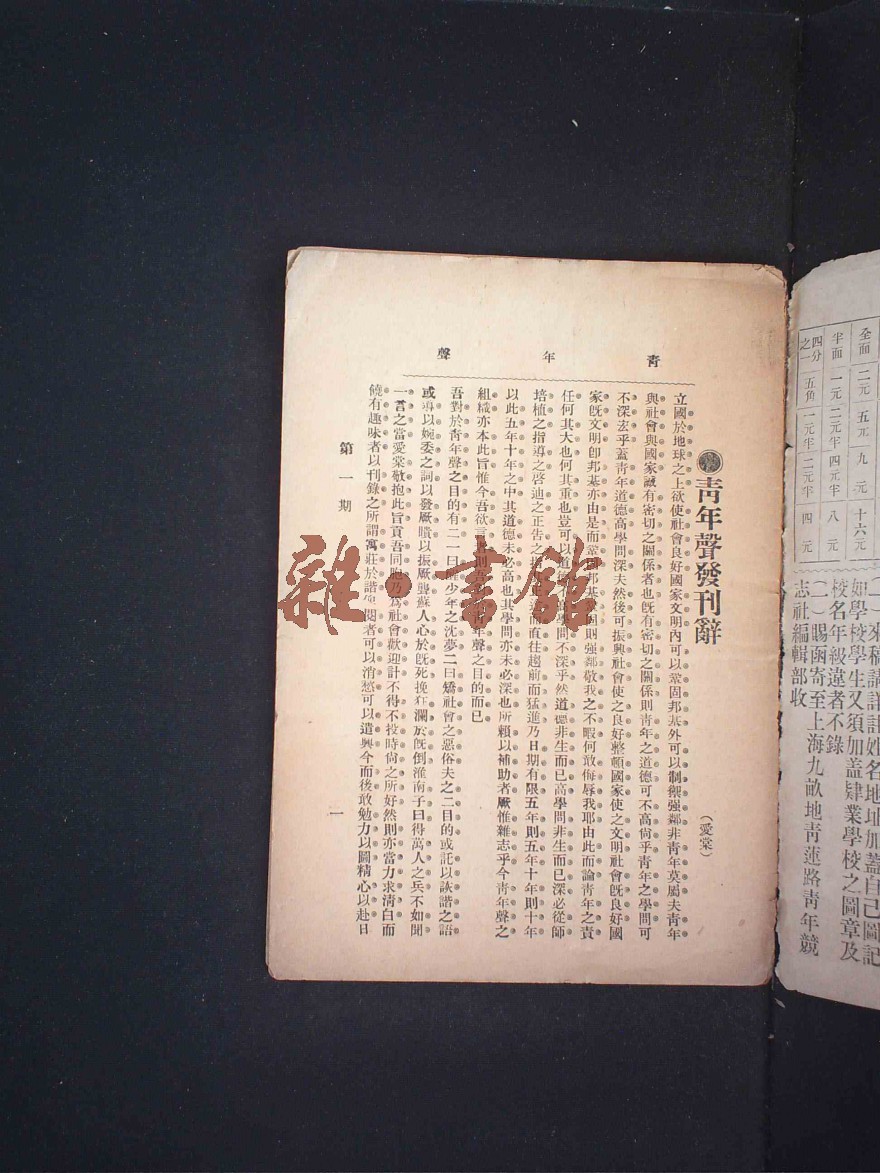 全面 二元 五元 九元 十六元
半面 一元 二元半 四元半 八元
四分之一 五角 一元半 二元半 四元
(一)來稿請詳註姓名地址加蓋自己圖記
如學校學生又須加蓋肄業學校之圖章及
校名年級違者不錄
(一)賜函寄至上海九畝地靑蓮路靑年競
志社編輯部收
靑年聲
靑年聲發刊辭
(愛棠)
立國於地球之上欲使社會良好國家文明內可以鞏固邦基外可以制禦强鄰非靑年莫屬夫靑年
與社會與國家誠有密切之關係者也旣有密切之關係則靑年之道德可不高尙乎靑年之學問可
不深玄乎蓋靑年道德高學問深夫然後可振興社會使之良好整頓國家使之文明社會旣良好國
家旣文明卽邦基亦由是而鞏固邦基鞏固則强鄰敬我之不暇何敢侮辱我耶由此而論靑年之責
任何其大也何其重也豈可以道德不高學問不深乎然道德非生而已高學問非生而已深必從師
培植之指導之啓迪之正告之而直往趨前而猛進乃日期有限五年則五年十年則十年
以此五年十年之中其道德未必高也其學問亦未必深也所賴以補助者厥惟雜志乎今靑年聲之
組織亦本此旨惟今吾欲言者則吾對於靑年聲之目的而已
吾對於靑年聲之目的有二一曰醒少年之沈夢二曰矯社會之惡俗夫之二目的或託以詼諧之語
或導以婉委之詞以發厥聵以振厥聾蘇人心於旣死挽狂瀾於旣倒淮南子曰得萬人之兵不如聞
一言之當愛棠敬抱此旨貢吾同胞乃爲社會歡迎計不得不投時尙之所好然則亦當力求淸白而
饒有趣味者以刊錄之所謂寓莊於諧閱者可以消愁可以遣興今而後敢勉力以圖精心以赴日
第一期
一
雜·書館